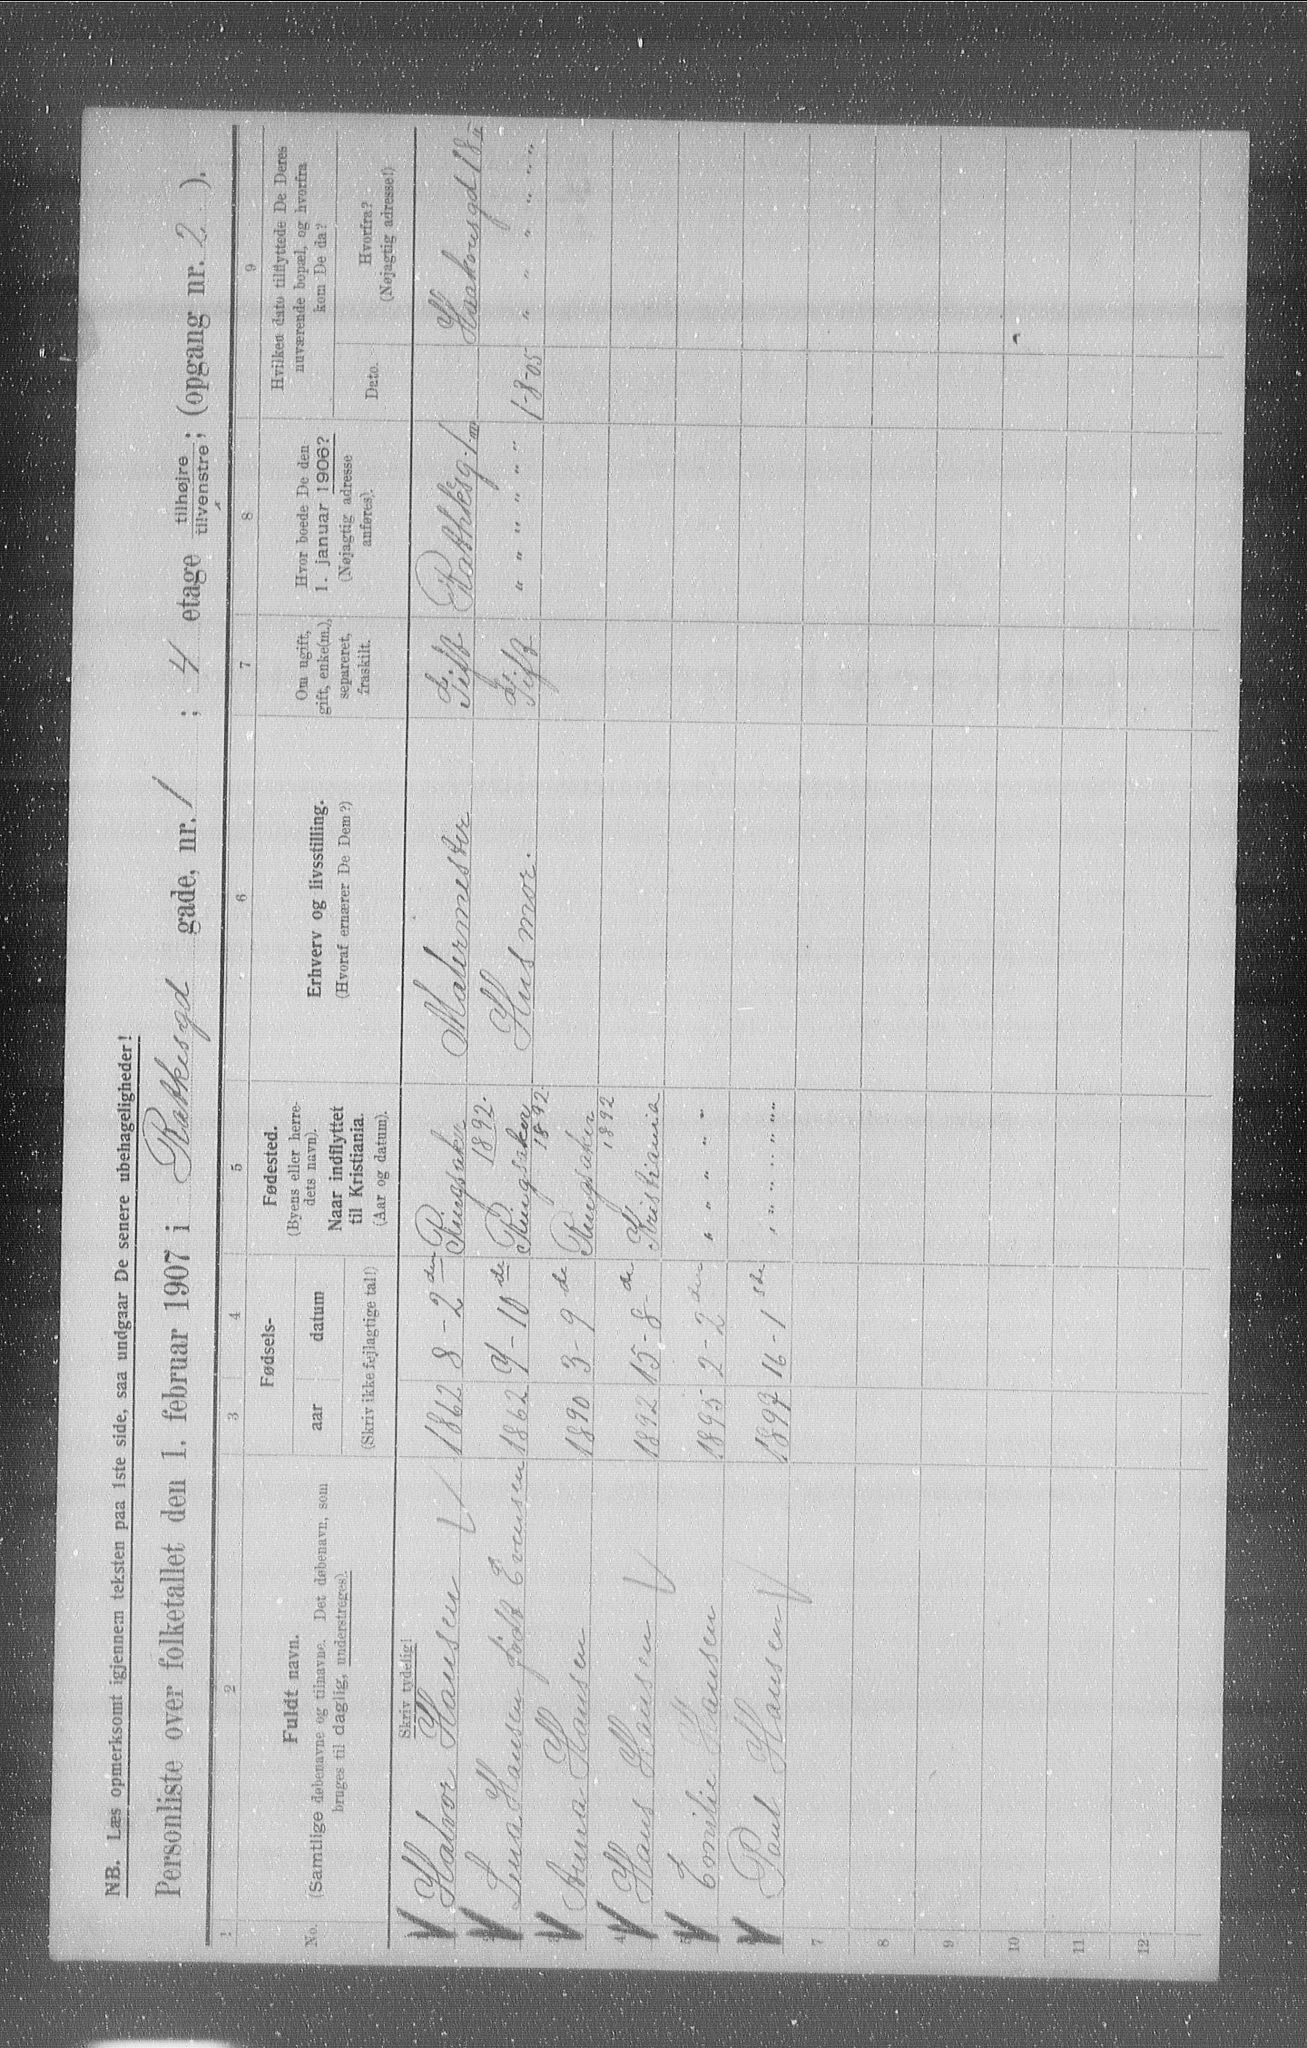 NB. Læs opmerksomt igjennem teksten paa 1ste side, saa undgaar De senere ubehageligheder!
Personliste over folketallet den 1. februar 1907 i Rathkesgd gade, nr. 1 ; 4 etage tilhøjre tilvenstre ; (opgang nr. 2 ).
1 2 3 4 5 6 7 8 9
No.
Fuldt navn.
(Samtlige døbenavne og tilnavne. Det døbenavn, som
bruges til daglig, understreges).
Fødsels-
aar datum
(Skriv ikke fejlagtige tal!)
Fødested.
(Byens eller herre-
dets navn).
Naar indflyttet
til Kristiania.
(Aar og datum).
Erhverv og livsstilling.
(Hvoraf ernærer De Dem?)
Om ugift,
gift, enke(m.),
separeret,
fraskilt.
Hvor boede De den
1. januar 1906?
(Nøjagtig adresse
anføres).
Hvilken dato tilflyttede De Deres
nuværende bopæl, og hvorfra
kom De da?
Dato.
Hvorfra?
(Nøjagtig adresse!)
Skriv tydelig!
Halvor Hansen 1862 8-2 den Ringsaker 1892. Malermester Gift Rathkesg. 1 Haakonsgd 18
2 Lina Hansen født Evensen 1862 9-10 de Ringsaker 1892 Husmor. Gift " " " " " " 1-8-05 " " " " " "
3 Anna Hansen 1890 3-9 de Ringsaker 1892
4 Hans Hansen 1892 15-8- de Kristiania
5 Emilie Hansen 1895 2-2 den " " " " "
6 Paul Hansen 1897 16-1 ste " " " " " "
7
8
9
10
11
12